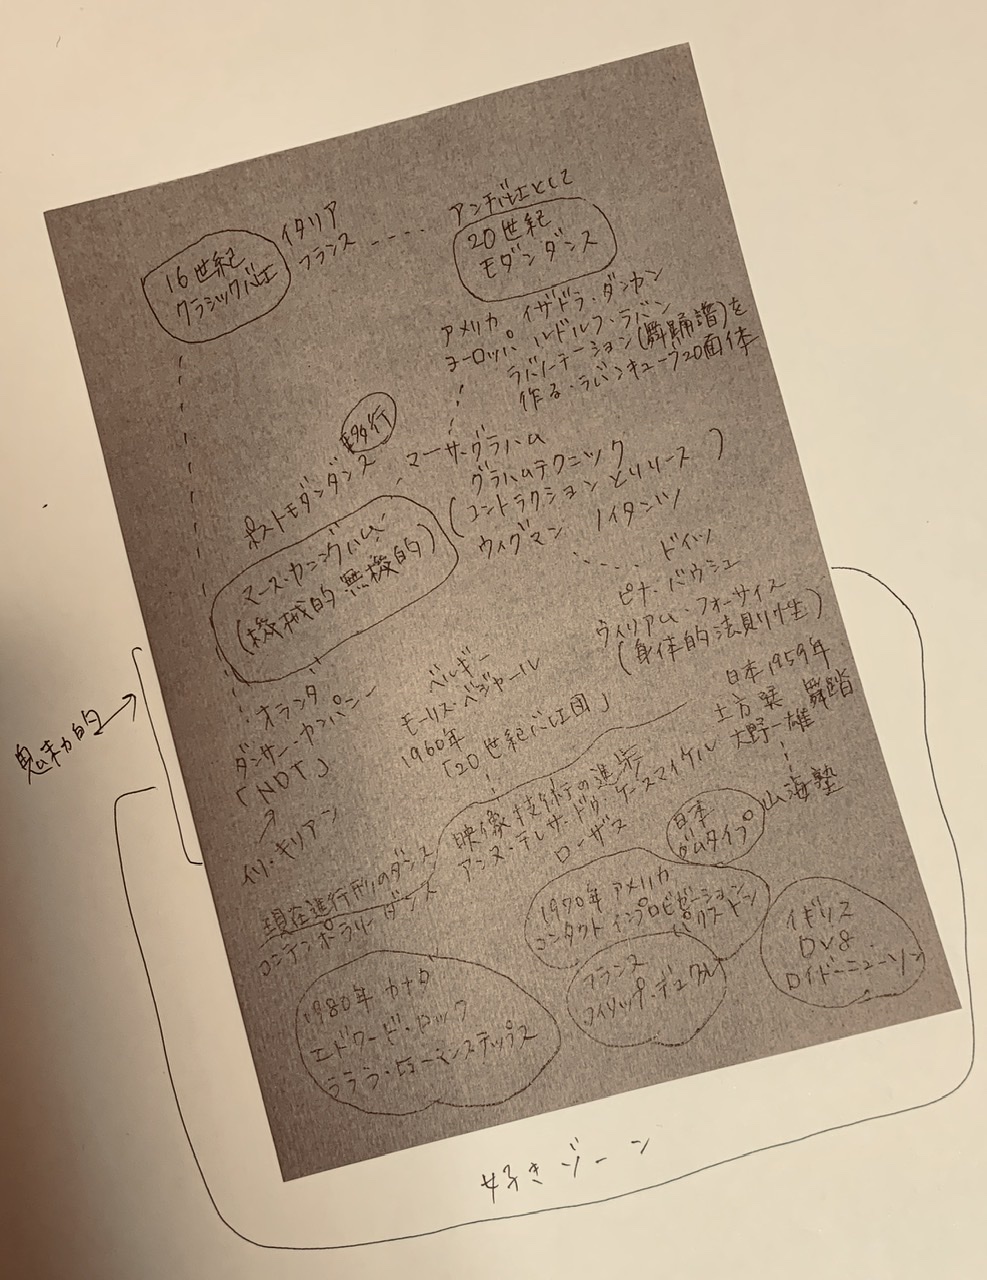 16世紀
クラシックバレエ
イタリア
フランス
アンチバレエとして
20世紀
モダンダンス
アメリカ イザドラ・ダンカン
ヨーロッパ ルドルフ・ラバン
ラバノーテーション(舞踊譜)を
作る・ラバンキューブ20面体
移行
ポストモダンダンス
マーサ・グラハム
グラハムテクニック
(コントラクションとリリース)
ウィグマン ノイタンツ
マース・カニングハム
(機械的無機的)
ドイツ
ピナ・バウシュ
ウィリアム・フォーサイス
(身体的法則性)
オランダ
ダンサー・カンパニー
「NDT」
イリ・キリアン
ベルギー
モーリス・ベジャール
1960年
「20世紀バレエ団」
日本1959年
土方巽 舞踏
大野一雄
山海塾
映像技術の進歩
アンヌ・テレサ・ドゥ・ケースマイケル
ローザス
日本
ダムタイプ
現在進行形のダンス
コンテンポラリーダンス
1970年 アメリカ
コンタクトインプロビゼーション
パクストン
フランス
フィリップ・デュクレ
イギリス
DV8
ロイド・ニューソン
1980年 カナダ
エドワード・ロック
ラララ・ヒューマンステップス
魅力的
好きゾーン